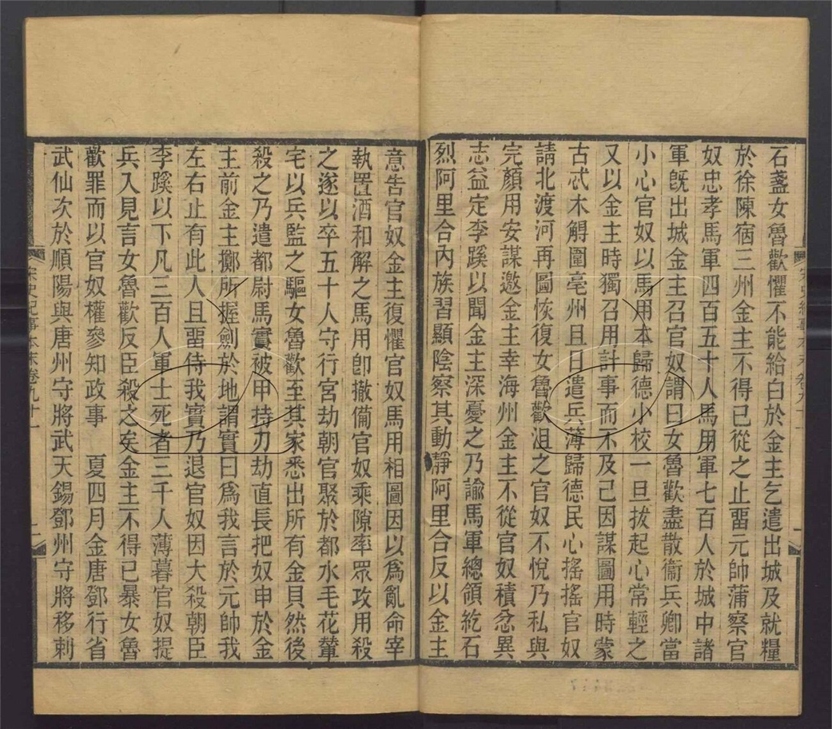 石盞女魯歡懼不能給白於金主乞遣出城及就糧
於徐陳宿三州金主不得已從之止畱元帥蒲察官
奴忠孝馬軍四百五十人馬用軍七百人於城中諸
軍旣出城金主召官奴謂曰女魯歡盡散衞兵卿當
小心官奴以馬用本歸德小校一旦拔起心常輕之
又以金主時獨召用計事而不及己因謀圖用時蒙
古忒木䚟圍亳州且日遣兵薄歸德民心搖搖官奴
請北渡河再圖恢復女魯歡沮之官奴不悅乃私與
完顏用安謀邀金主幸海州金主不從官奴積忿異
志益定李蹊以聞金主深憂之乃諭馬軍總領紇石
烈阿里合內族習顯陰察其動靜阿里合反以金主
意告官奴金主復懼官奴馬用相圖因以爲亂命宰
執置酒和解之馬用卽撤備官奴乘隙率眾攻用殺
之遂以卒五十人守行宮劫朝官聚於都水毛花輦
宅以兵監之驅女魯歡至其家悉出所有金貝然後
殺之乃遣都尉馬實被甲持刃劫直長把奴申於金
主前金主擲所握劍於地謂實曰爲我言於元帥我
左右止有此人且畱侍我實乃退官奴因大殺朝臣
李蹊以下凡三百人軍士死者三千人薄暮官奴提
兵入見言女魯歡反臣殺之矣金主不得已暴女魯
歡罪而以官奴權參知政事　夏四月金唐鄧行省
武仙次於順陽與唐州守將武天錫鄧州守將移剌
宋史紀事本末卷九十一